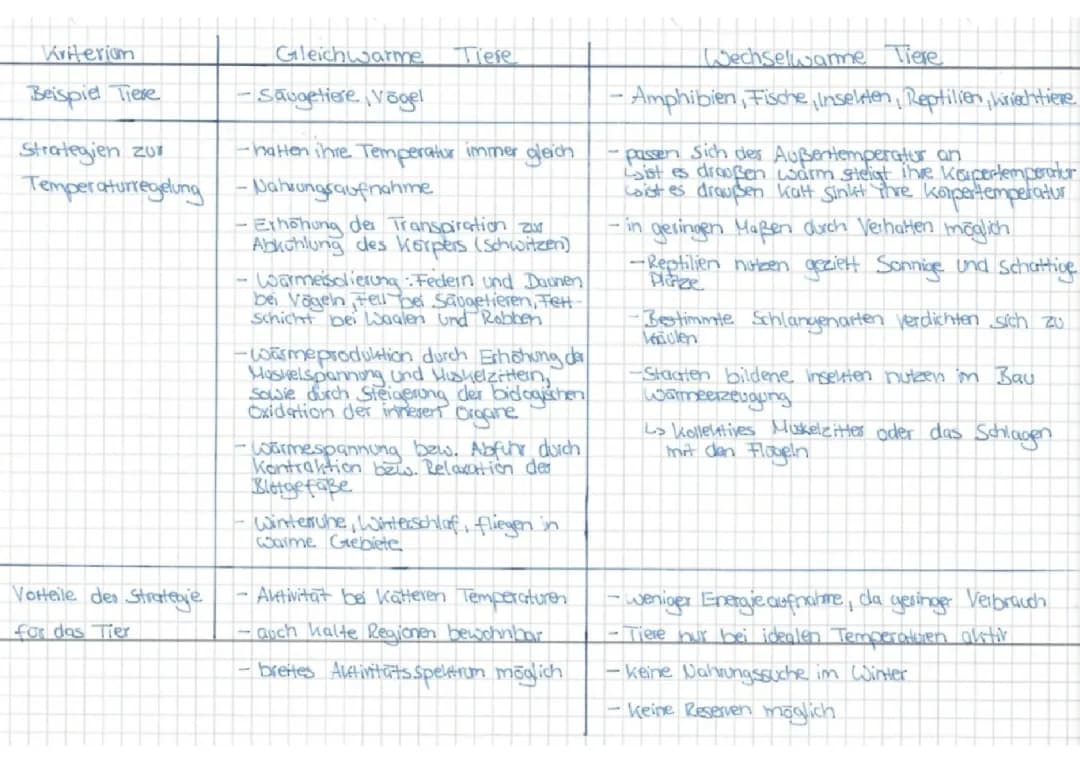 Kriterium
Gleichwarme Tiere
Wechselwarme Tiere
Beispiel Tiere
- Säugetiere, Vögel
- Amphibien, Fische, Insekten, Reptilien, Kriechtiere
Strategien zur
Temperaturregelung
- halten ihre Temperatur immer gleich
- Nahrungsaufnahme
- Erhöhung der Transpiration zur
Abkühlung des Körpers (Schwitzen)
- Wärmeisolierung: Federn und Daunen
bei Vögeln, Fell bei Säugetieren, Fett-
schicht bei Waalen und Robben
- Wärmeproduktion durch Erhöhung der
Muskelspannung und Muskelzittern,
sowie durch Steigerung der biologischen
Oxidation der inneren Organe
- Wärmespannung bzw. Abfuhr durch
Kontraktion bzw. Relaxation der
Blutgefäße
- Winterruhe, Winterschlaf, fliegen in
warme Gebiete
- passen sich der Außentemperatur an
↳ ist es draußen warm steigt ihre Körpertemperatur
↳ ist es draußen kalt sinkt ihre Körpertemperatur
- in geringen Maßen durch Verhalten möglich
- Reptilien nutzen gezielt Sonnige und Schattige
Plätze
- Bestimmte Schlangenarten verdichten sich zu
Käulen
- Staaten bildene Insekten nutzen im Bau
Wärmeerzeugung
↳ Kollektives Muskelzitter oder das Schlagen
mit den Flügeln
Vorteile der Strategie
für das Tier
- Aktivität bei kälteren Temperaturen
- auch kalte Regionen bewohnbar
- breites Aktivitätsspektrum möglich
- weniger Energieaufnahme, da geringer Verbrauch
- Tiere nur bei idealen Temperaturen aktiv
- keine Nahrungssuche im Winter
- keine Reserven möglich